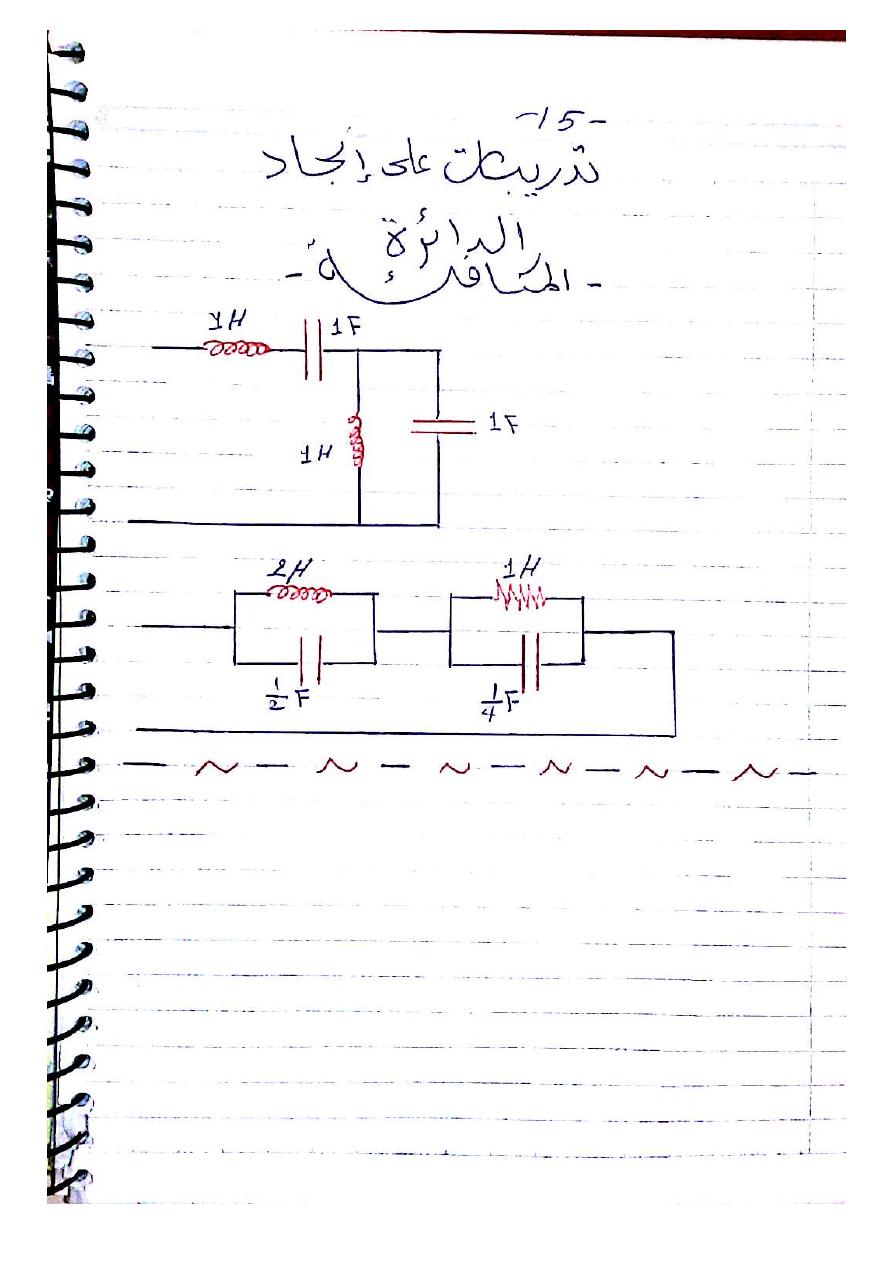 -15-
تدريبات على إيجاد
الدائرة
- المكافئة -
1H 1F
1F
1H
2H 1H
1/2 F 1/4 F